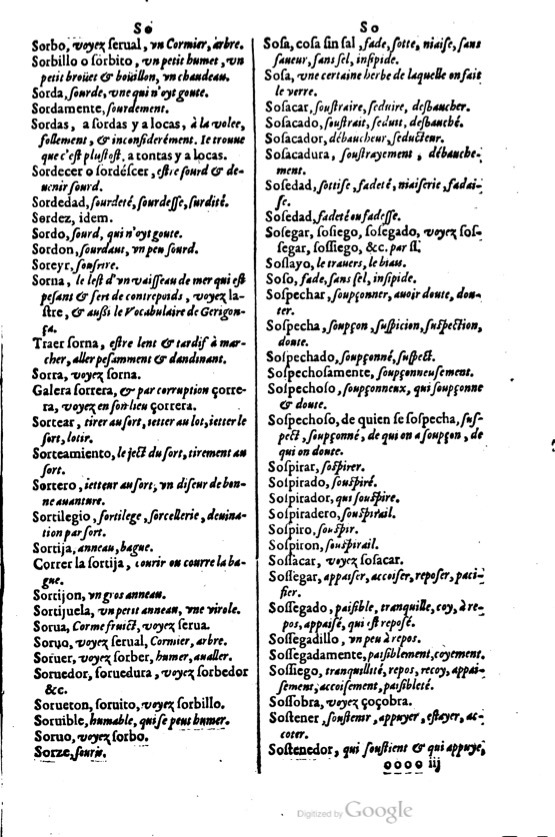 So
Sorbo, voyez serual, vn Cormier, arbre.
Sorbillo o sórbito, vn petit humet, vn
petit broüet & boüillon, vn chaudeau.
Sorda, sourde, vne qui n'oyt goute.
Sordamente, sourdement.
Sordas, a sordas y a locas, à la volee,
follement, & inconsiderément. Ie trouue
que c'est plustost, a tontas y a locas.
Sordecer o sordéscer, estre sourd & de-
uenir sourd.
Sordedad, sourdeté, sourdesse, surdité.
Sordez, idem.
Sordo, sourd, qui n'oyt goute.
Sordon, sourdaut, vn peu sourd.
Soreyr, sousrire.
Sorna, le lest d'vn vaisseau de mer qui est
pesant & sert de contrepoids, voyez la-
stre, & aussi le Vocabulaire de Gerigon-
ça.
Traer sorna, estre lent & tardif à mar-
cher, aller pesamment & dandinant.
Sorra, voyez sorna.
Galera sorrera, & par corruption çorre-
ra, voyez en son lieu çorrera.
Sortear, tirer au sort, ietter au lot, ietter le
sort, lotir.
Sorteamiento, le ject du sort, tirement au
sort.
Sortero, ietteur au sort, vn diseur de bon-
ne auanture.
Sortilegio, sortilege, sorcellerie, deuina-
tion par sort.
Sortija, anneau, bague.
Correr la sortija, courir ou courre la ba-
gue.
Sortijon, vn gros anneau.
Sortijuela, vn petit anneau, vne virole.
Sorua, Corme fruict, voyez serua.
Soruo, voyez serual, Cormier, arbre.
Soruer, voyez sorber, humer, aualler.
Soruedor, soruedura, voyez sorbedor
&c.
Sorueton, soruito, voyez sorbillo.
Soruible, humable, qui se peut humer.
Soruo, voyez sorbo.
Sorze, souris.
So
Sosa, cosa sin sal, fade, sotte, niaise, sans
saueur, sans sel, insipide.
Sosa, vne certaine herbe de laquelle on fait
le verre.
Sosacar, soustraire, seduire, desbaucher.
Sosacado, soustrait, seduit, desbauché.
Sosacador, débaucheur, seducteur.
Sosacadura, soustrayement, débauche-
ment.
Sosedad, sottise, fadeté, niaiserie, fadai-
se.
Sosedad, fadeté ou fadesse.
Sosegar, sosiego, sosegado, voyez sos-
segar, sossiego, &c. par ss.
Soslayo, le trauers, le biais.
Soso, fade, sans sel, insipide.
Sospechar, soupçonner, auoir doute, dou-
ter.
Sospecha, soupçon, suspicion, suspection,
doute.
Sospechado, soupçonné, suspect.
Sospechosamente, soupçonneusement.
Sospechoso, soupçonneux, qui soupçonne
& doute.
Sospechoso, de quien se sospecha, sus-
pect, soupçonné, de qui on a soupçon, de
qui on doute.
Sospirar, sospirer.
Sospirado, souspiré.
Sospirador, qui souspire.
Sospiradero, souspirail.
Sospiro, souspir.
Sospiron, souspirail.
Sossacar, voyez sosacar.
Sossegar, appaiser, accoiser, reposer, paci-
fier.
Sossegado, paisible, tranquille, coy, à re-
pos, appaisé, qui est reposé.
Sossegadillo, vn peu à repos.
Sossegadamente, paisiblement, coyement.
Sossiego, tranquillité, repos, recoy, appai-
sement, accoisement, paisibleté.
Sossobra, voyez çoçobra.
Sostener, soustenir, appuyer, estayer, ac-
coter.
Sostenedor, qui soustient & qui appuye,
oooo iij
Digitized by Google